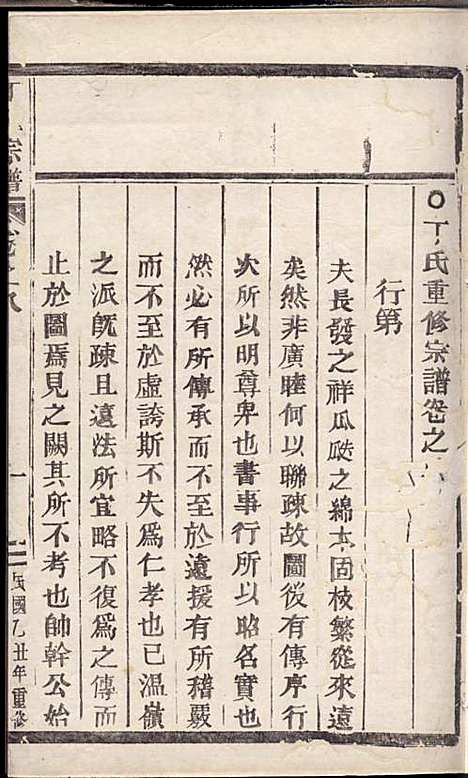 丁氏重修宗譜卷之
行第
夫長發之祥瓜瓞之綿本固枝繁從來遠
矣然非廣睦何以聯疎故圖後有傳序行
次所以明尊卑也書事行所以昭名實也
然必有所傳承而不至於遠援有所稽覈
而不至於虛誇斯不失為仁孝也已溫嶺
之派旣疎且遠法所宜略不復為之傳而
止於圖焉見之闕其所不考也帥幹公始
宗譜
卷之八
一
民國乙丑年重修